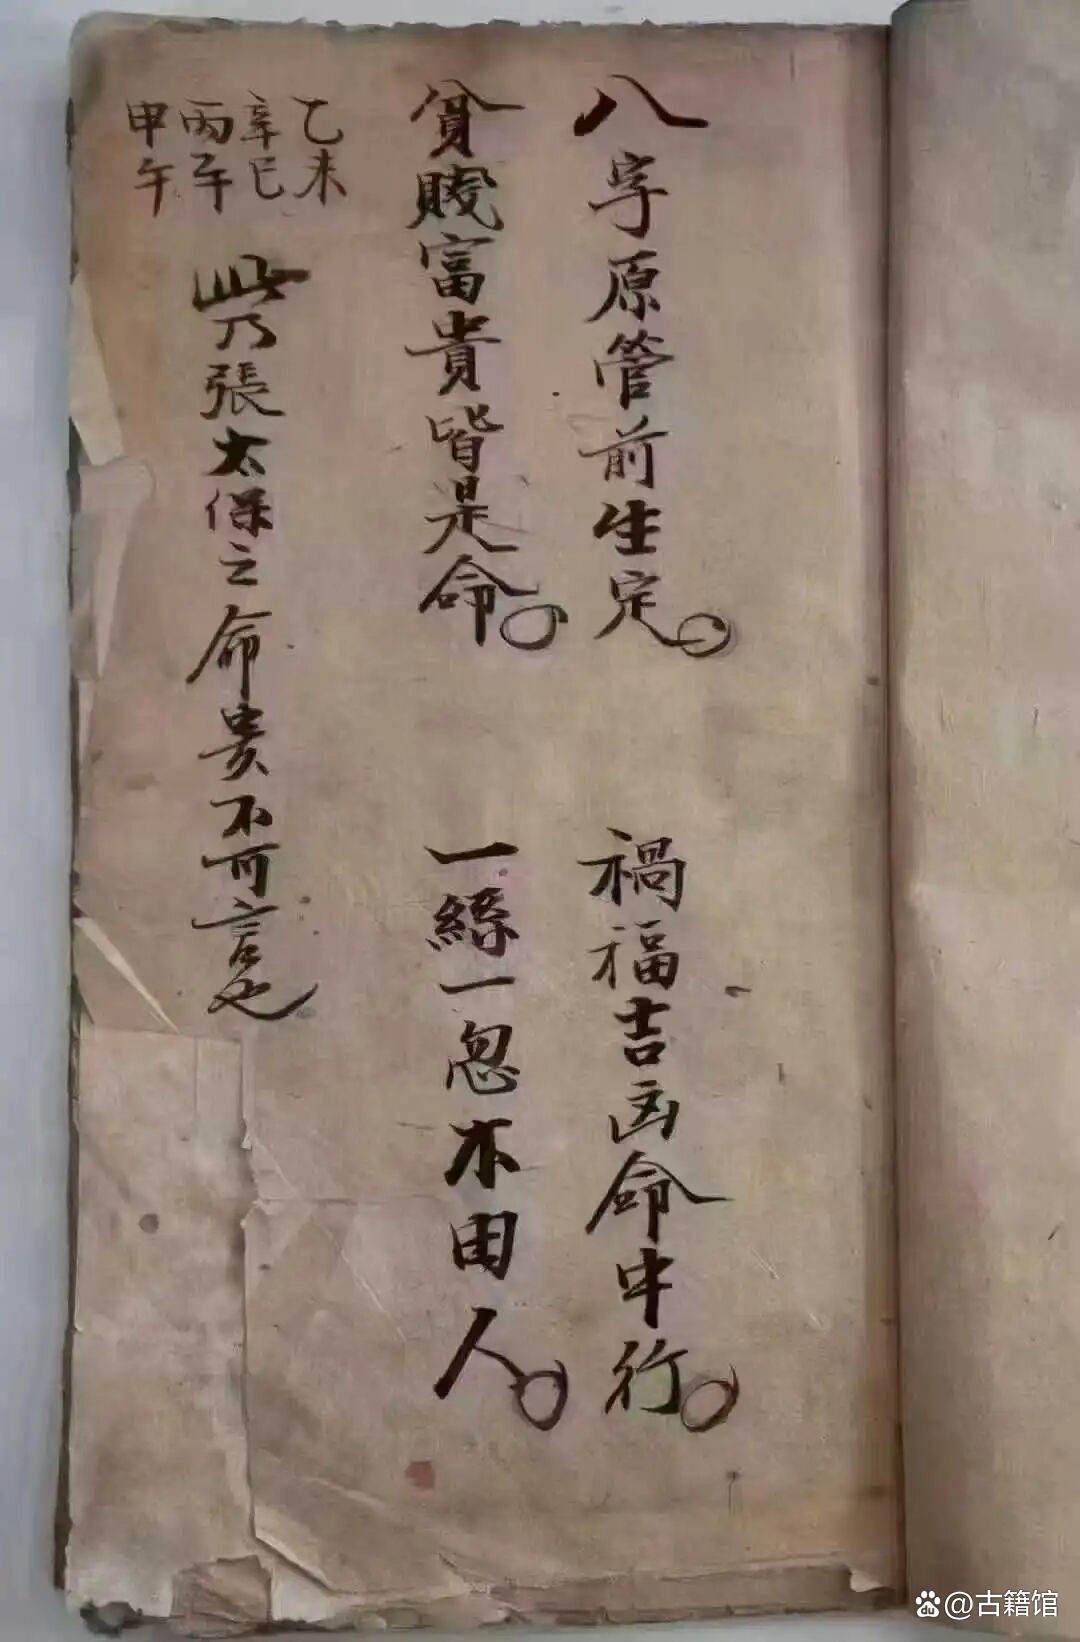 八字原管前生定。
禍福吉凶命中行。
貧賤富貴皆是命。
一絲一忽不由人。
乙未
辛巳
丙午
甲午
此乃張太保之命貴不可言也
@古籍馆